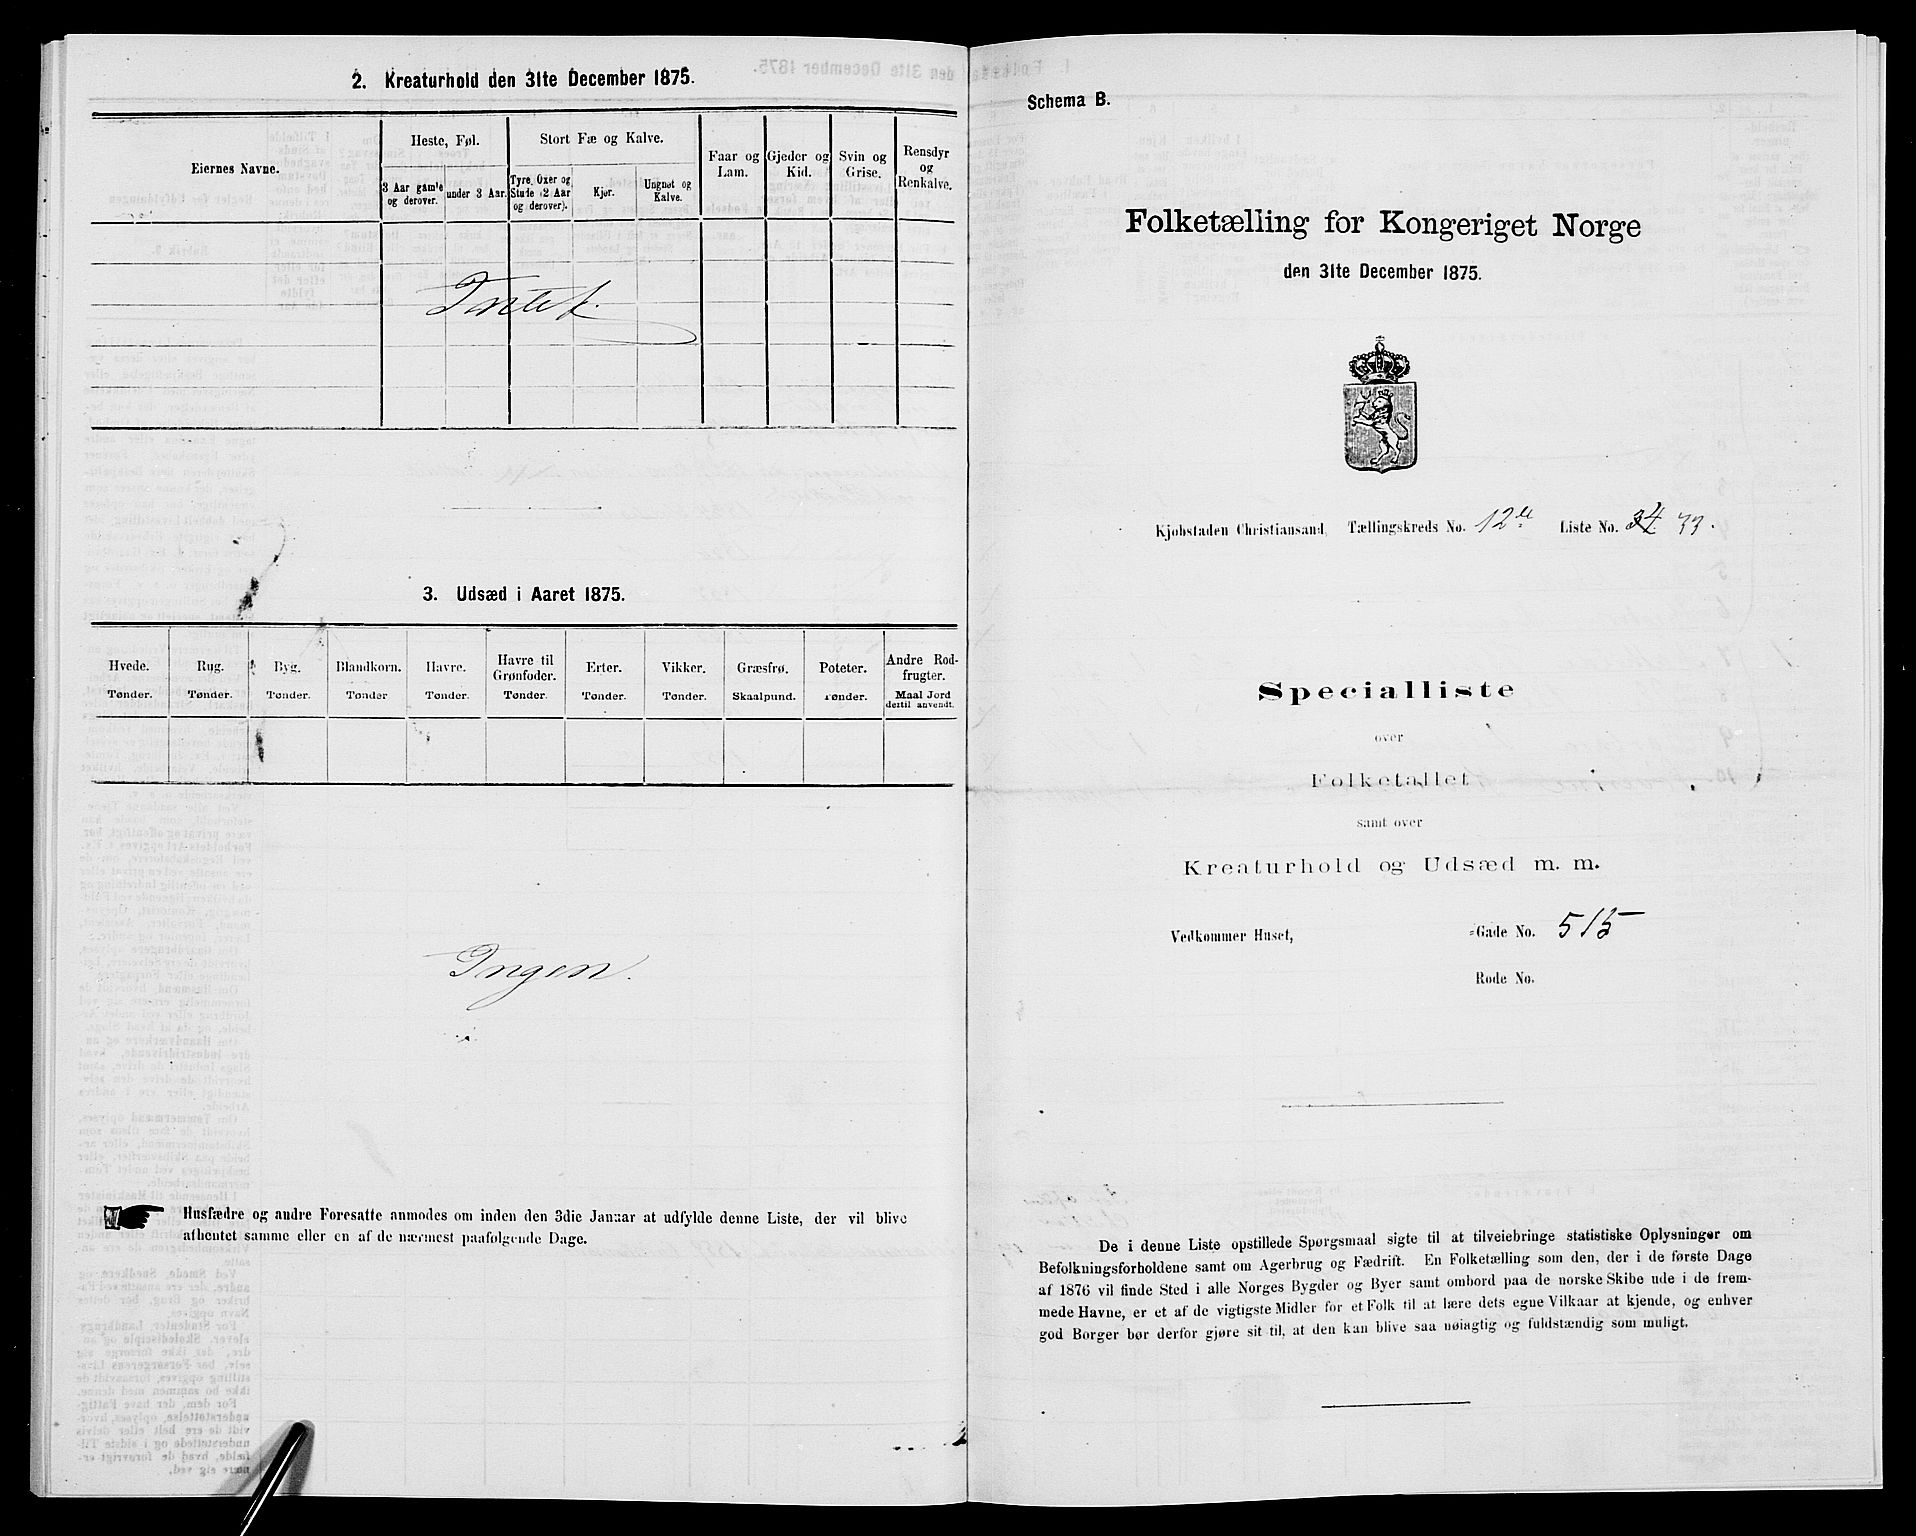 2. Kreaturhold den 31te December 1875.
Eiernes Navne.
Heste, Føl.
Stort Fæ og Kalve.
Faar og Lam.
Gjeder og Kid.
Svin og Grise.
Rensdyr og Renkalve.
3 Aar gamle og derover.
under 3 Aar.
Tyre, Oxer og Stude (2 Aar og derover).
Kjør.
Ungnøt og Kalve.
Intet.
3. Udsæd i Aaret 1875.
Hvede.
Rug.
Byg.
Blandkorn.
Havre.
Havre til Grønfoder.
Erter.
Vikker.
Græsfrø.
Poteter.
Andre Rodfrugter.
Tønder.
Tønder.
Tønder.
Tønder
Tønder.
Tønder.
Tønder.
Tønder.
Skaalpund.
Tønder.
Maal Jord dertil anvendt.
Ingen.
Husfædre og andre Foresatte anmodes om inden den 3die Januar at udfylde denne Liste, der vil blive
afhentet samme eller en af de nærmest paafølgende Dage.
Schema B.
Folketælling for Kongeriget Norge
den 31te December 1875.
Kjøbstaden Christiansand, Tællingskreds No. 12te Liste No. 34. 33.
Specialliste
over
Folketallet
samt over
Kreaturhold og Udsæd m. m.
Vedkommer Huset, -Gade No. 515
Rode No.
De i denne Liste opstillede Spørgsmaal sigte til at tilveiebringe statistiske Oplysninger om
Befolkningsforholdene samt om Agerbrug og Fædrift. En Folketælling som den, der i de første Dage
af 1876 vil finde Sted i alle Norges Bygder og Byer samt ombord paa de norske Skibe ude i de frem-
mede Havne, er et af de vigtigste Midler for et Folk til at lære dets egne Vilkaar at kjende, og enhver
god Borger bør derfor gjøre sit til, at den kan blive saa nøiagtig og fuldstændig som muligt.